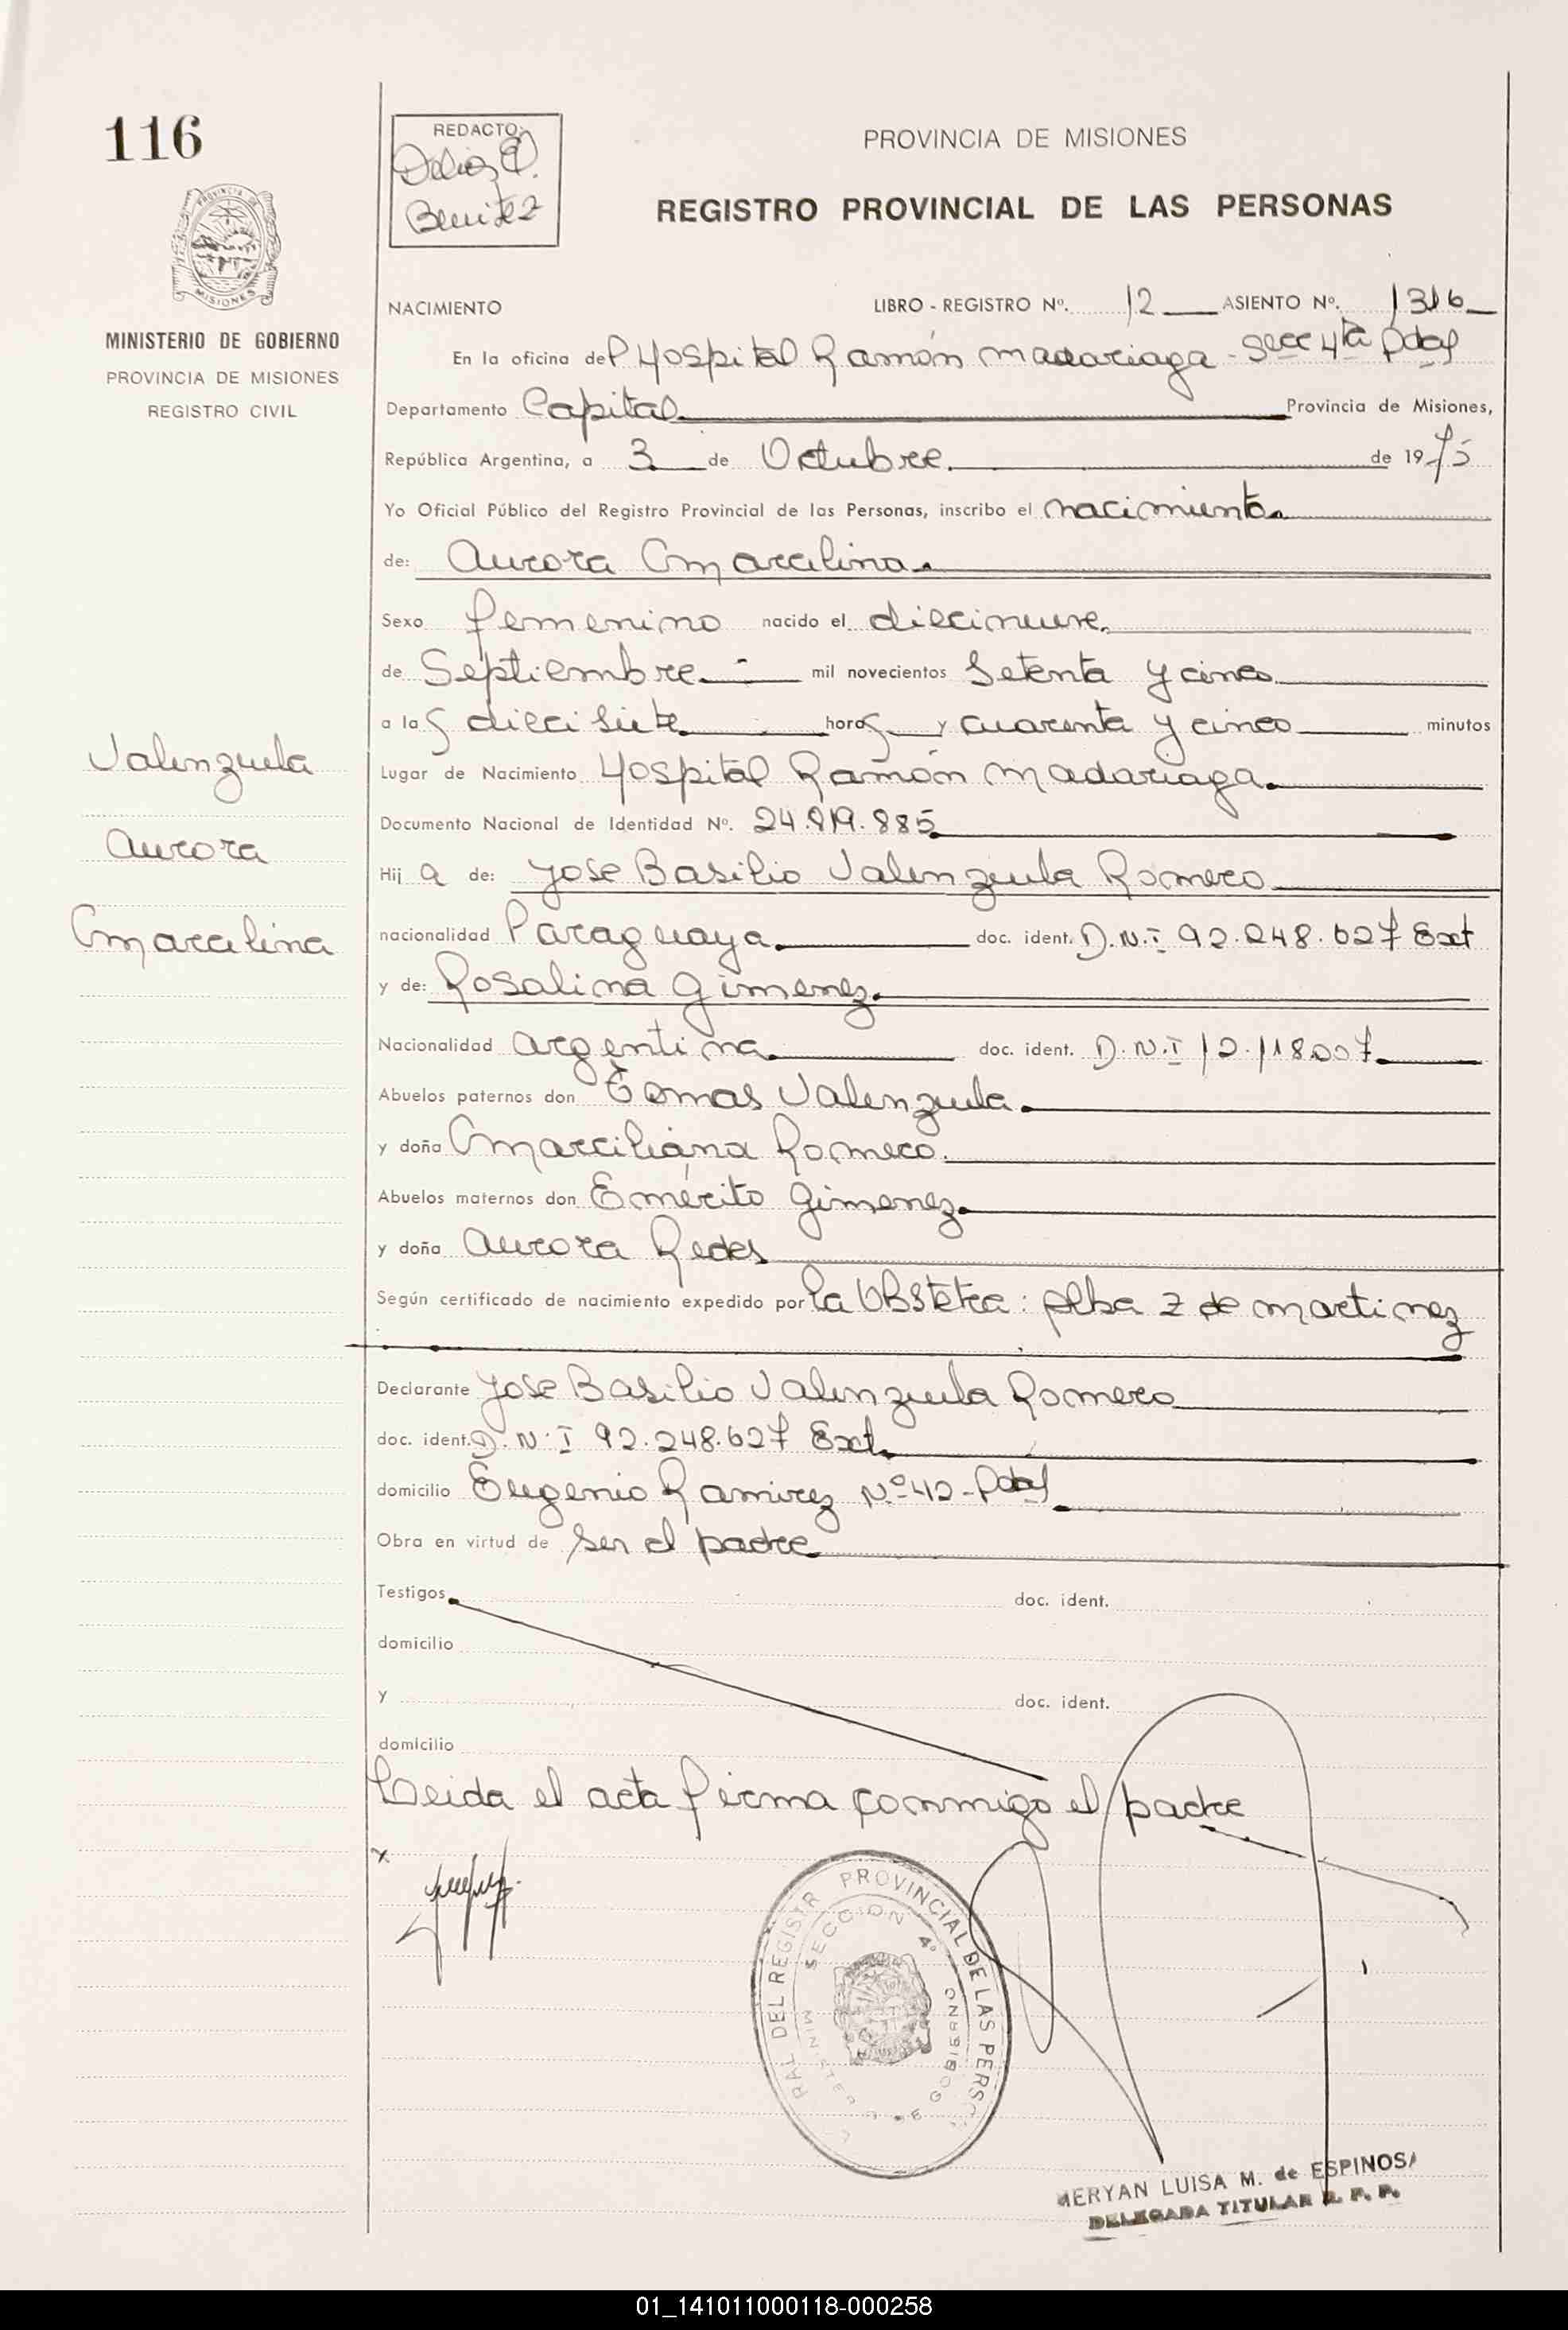 116
REDACTO:
Delia E.
Benitez
PROVINCIA DE MISIONES
REGISTRO PROVINCIAL DE LAS PERSONAS
MISIONES
MINISTERIO DE GOBIERNO
PROVINCIA DE MISIONES
REGISTRO CIVIL
NACIMIENTO LIBRO - REGISTRO Nº. 12 ASIENTO Nº. 1316
En la oficina del Hospital Ramón Madariaga - Secc 4ta Pdas
Departamento Capital Provincia de Misiones,
República Argentina, a 3 de Octubre de 1975
Yo Oficial Público del Registro Provincial de las Personas, inscribo el nacimiento
de: Aurora Marcelina
Sexo femenino nacido el diecinueve
de Septiembre mil novecientos Setenta y cinco
a las diecisiete horas y cuarenta y cinco minutos
Lugar de Nacimiento Hospital Ramón Madariaga
Documento Nacional de Identidad Nº. 24.819.885
Hija de: Jose Basilio Valenzuela Romero
nacionalidad Paraguaya doc. ident. D.N.I 92.248.627 Ext
y de: Rosalina Gimenez
Nacionalidad Argentina doc. ident. D.N.I 12.118.007
Abuelos paternos don Tomas Valenzuela
y doña Marciliana Romero
Abuelos maternos don Emérito Gimenez
y doña Aurora Redes
Según certificado de nacimiento expedido por la Obstetra: Elba Z de Martinez
Declarante Jose Basilio Valenzuela Romero
doc. ident. D.N.I 92.248.627 Ext
domicilio Eugenio Ramirez Nº 42 - Pdas
Obra en virtud de ser el padre
Testigos doc. ident.
domicilio
y doc. ident.
domicilio
Leida el acta firma conmigo el padre
Valenzuela
Aurora
Marcelina
x
RAL DEL REGISTR PROVINCIAL DE LAS PERSO
SECCION 4º
GOBIERNO
MERYAN LUISA M. de ESPINOSA
DELEGADA TITULAR R. P. P.
01_141011000118-000258